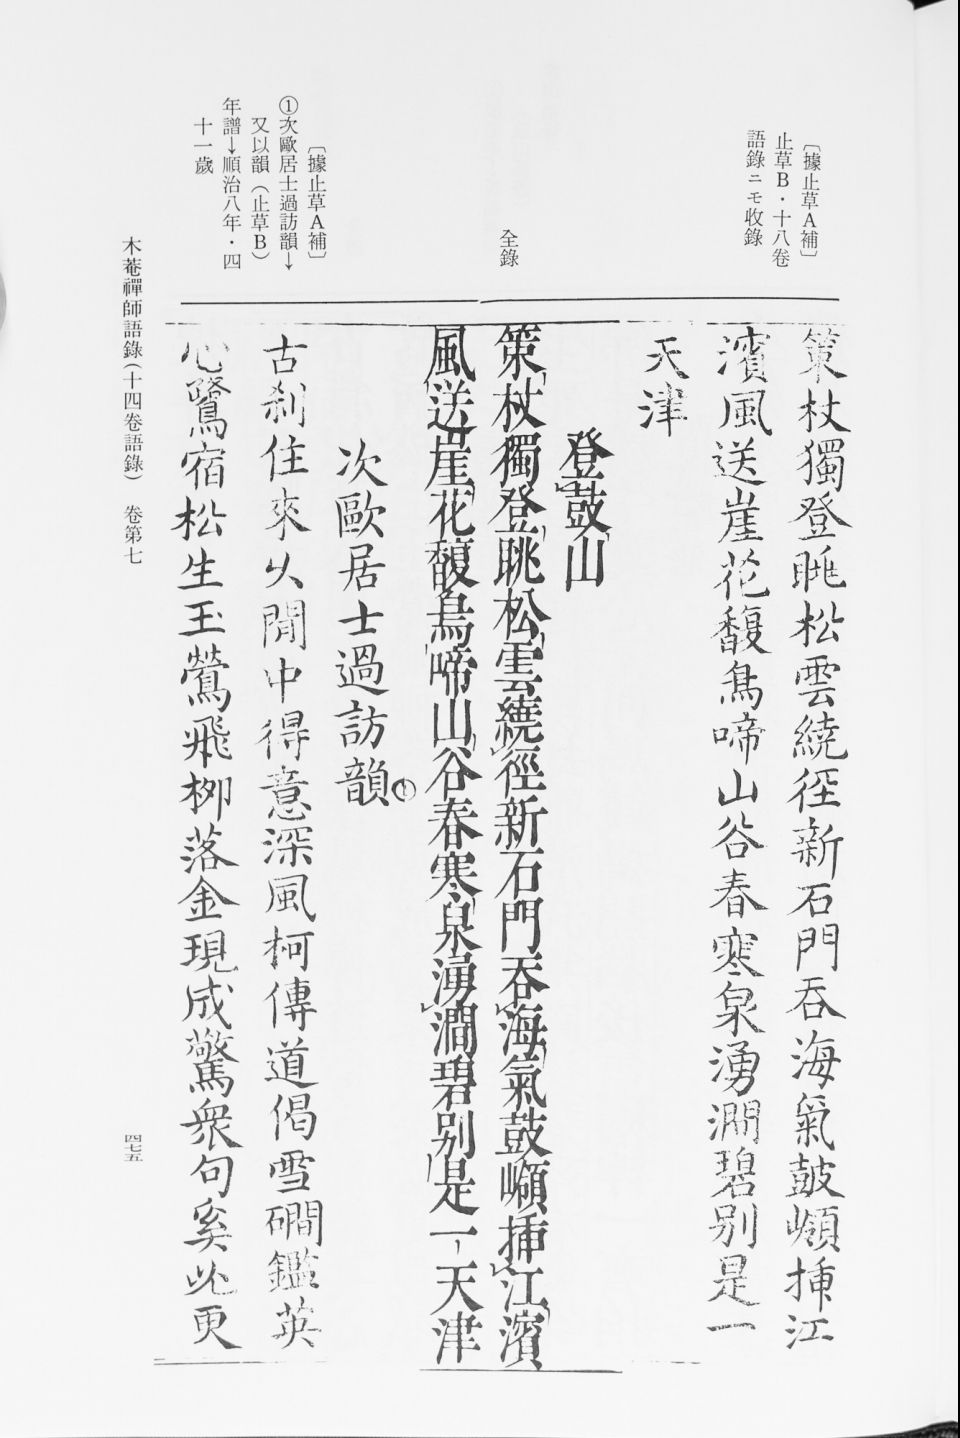 〔據止草A補〕
止草B・十八卷
語錄ニモ收錄
策杖獨登眺松雲繞徑新石門吞海氣鼓巔挿江
濱風送崖花馥鳥啼山谷春寒泉湧澗碧別是一
天津
全錄
登鼓山
策杖獨登眺松雲繞徑新石門吞海氣鼓巔挿江濱
風送崖花馥鳥啼山谷春寒泉湧澗碧別是一天津
〔據止草A補〕
①次歐居士過訪韻→
又以韻(止草B)
年譜→順治八年・四
十一歲
次歐居士過訪韻①
古刹住來久閒中得意深風柯傳道偈雪磵鑑英
心鷺宿松生玉鶯飛柳落金現成驚衆句奚必更
木菴禪師語錄(十四卷語錄) 卷第七
四七五